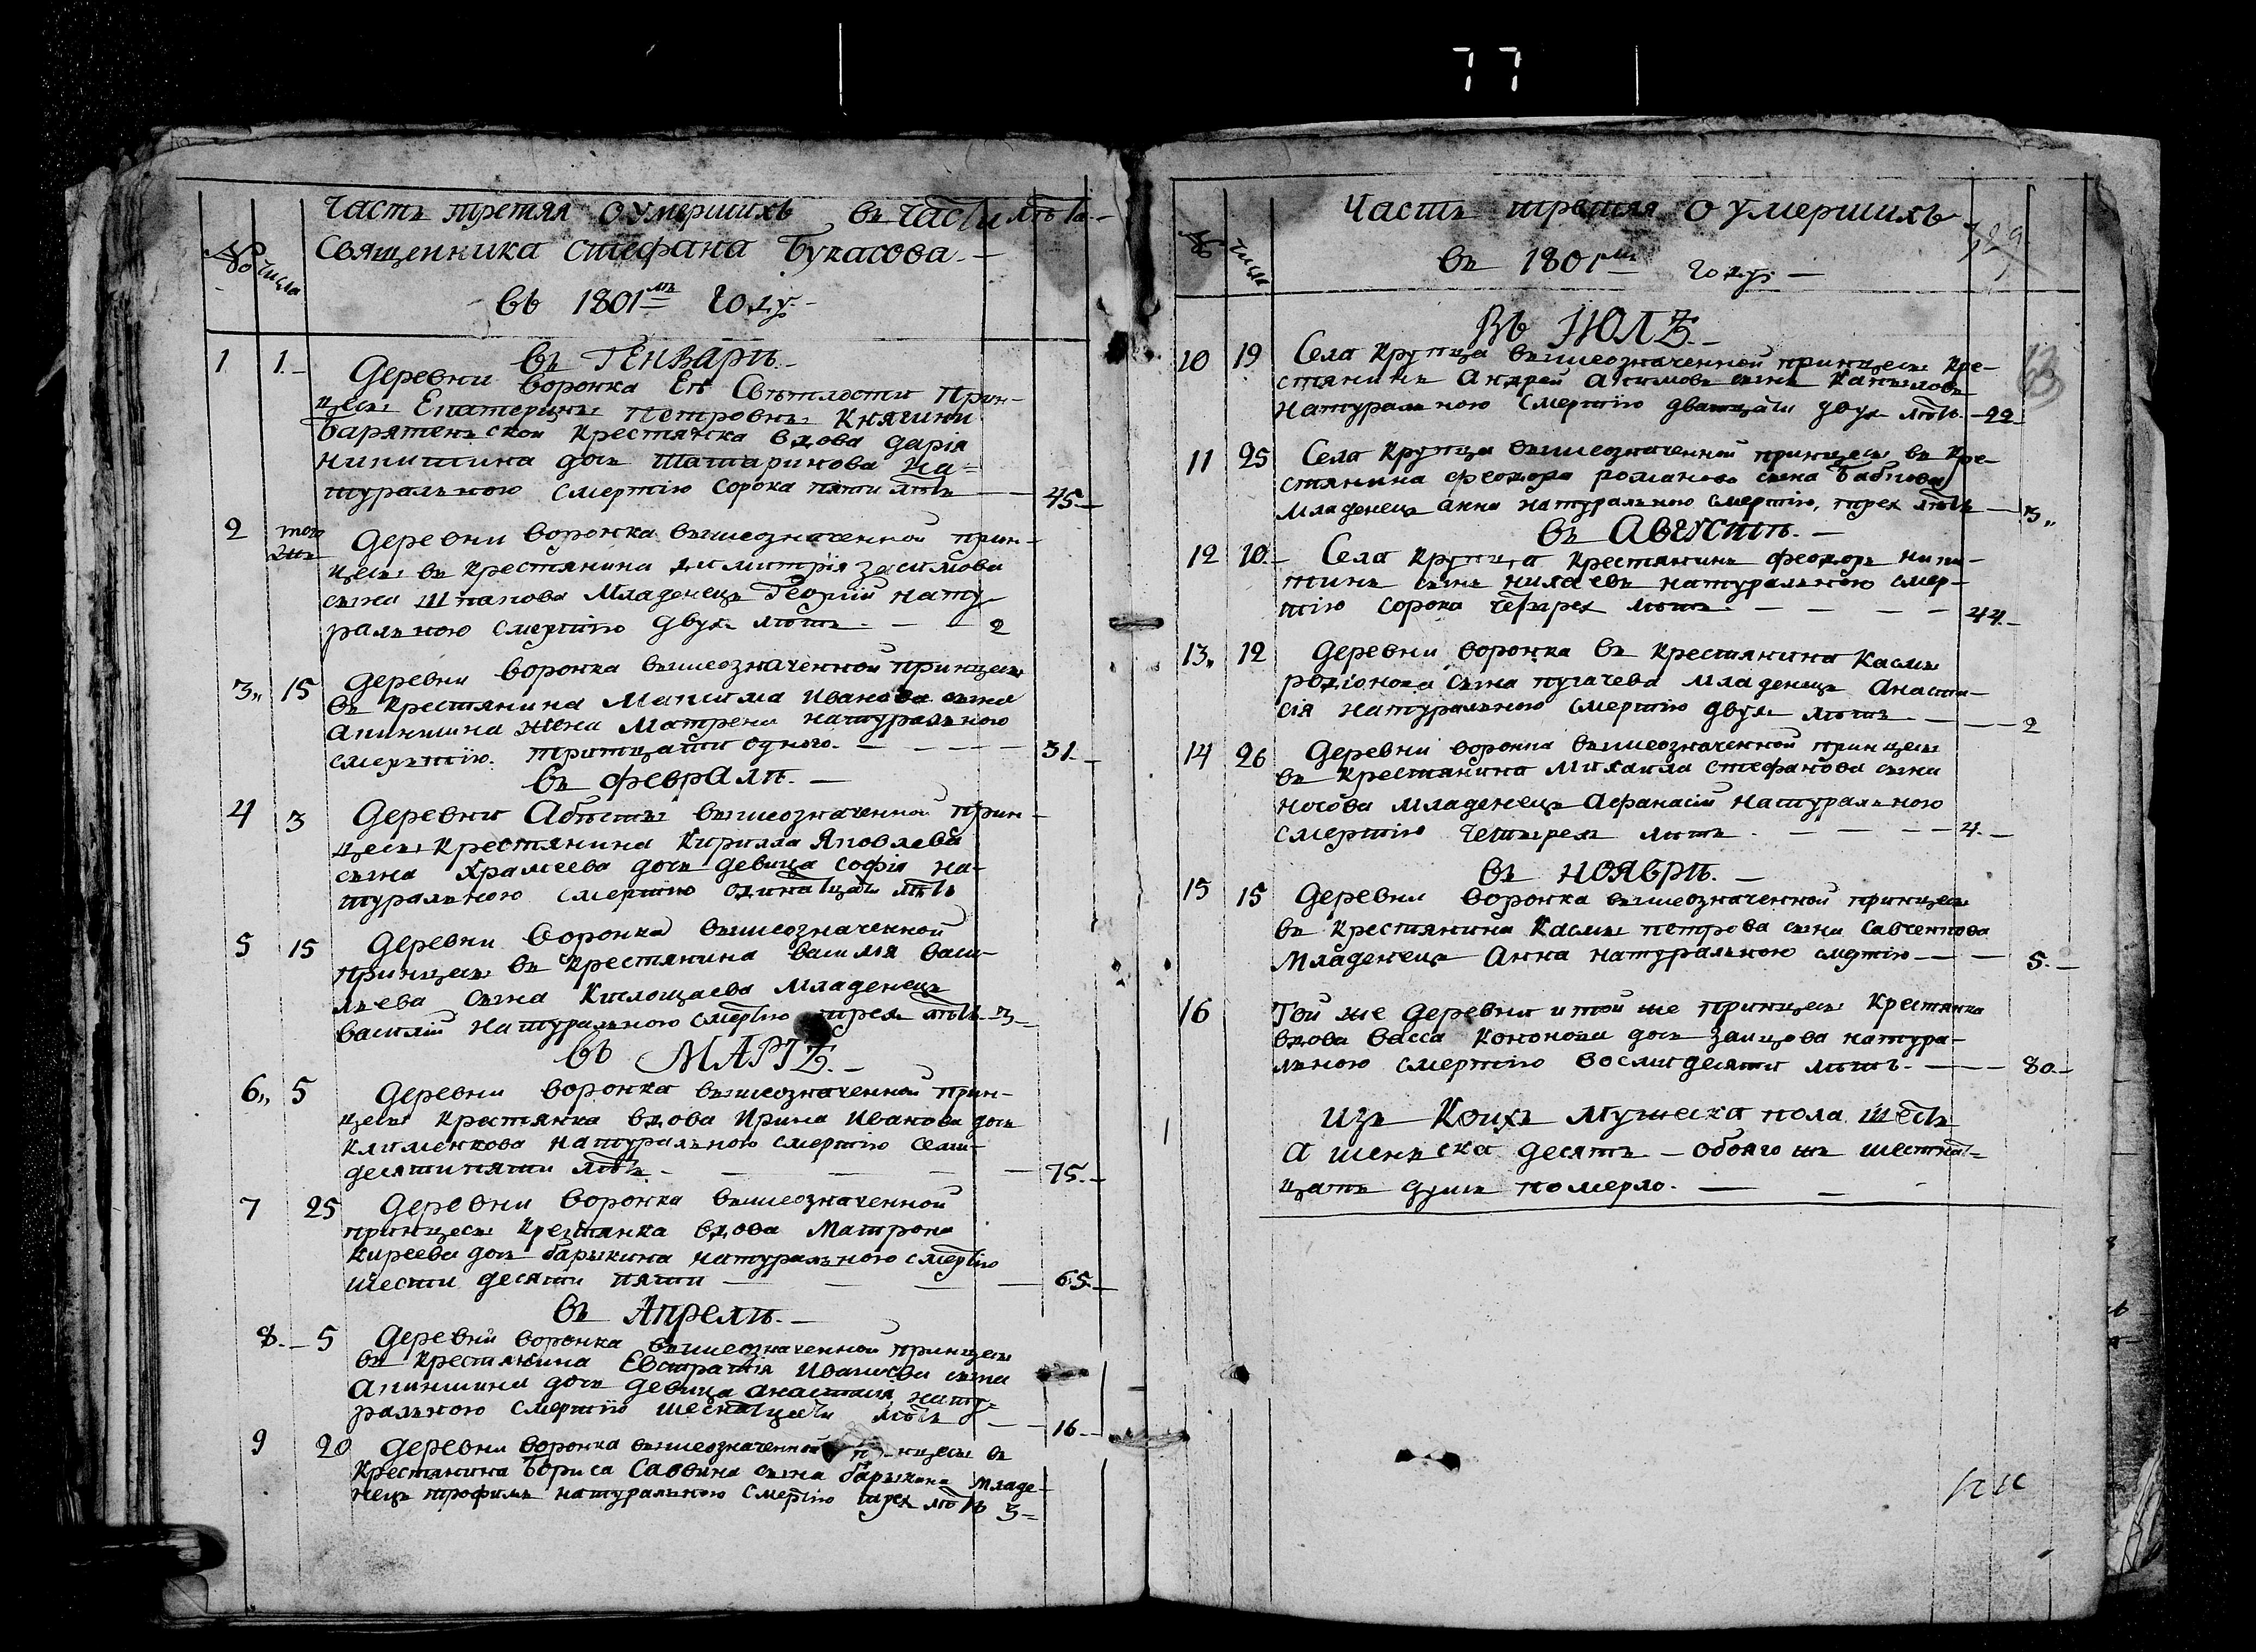 77
Часть третяя о умершихъ въ части лѣтъ
Священника Стефана Букасова
№
числа
въ 1801мъ году
въ Генварѣ
1 1 Деревни Воронка Еѣ Свѣтлости Прин-
цесы Екатерины Петровны Княгини
Барятенской крестянка вдова Дарія
Никитина дочь Шатарикова на=
туральною смертію сорока пяти лѣтъ 45
2 того же Деревни Воронка вышеозначенной прин-
цесы въ крестянина Димитрія Засимова
сына Шпакова младенецъ Георгій нату
ральною смертію двухъ лѣтъ 2
3 15 Деревни Воронка вышеозначенной принцесы
въ крестянина Макѵима Иванова сына
Апиншина жена Матрена натуральною
смертію тритцати одного 31
въ Февралѣ
4 3 Деревни вышеозначенной прин
цесы крестянина Кирилла Яковлева
сына Храмеева дочь девица Софія на-
туральною смертію одинатцати лѣтъ
5 15 Деревни Воронка вышеозначенной
принцесы въ крестянина Василія Васи-
льева сына Кислощаева младенецъ
Василій натуральною смертію трехъ лѣтъ 3
въ МАРТѢ
6 5 Деревни Воронка вышеозначенной прин-
цесы крестянка вдова Ирина Иванова дочь
Клименкова натуральною смертію семи-
десяти пяти лѣтъ 75
7 25 Деревни Воронка вышеозначенной
принцесы крестянка вдова Матрона
Киреева дочь Барыкина натуральною смертію
шести десяти пяти 65
въ Апрелѣ
8 5 Деревни Воронка вышеозначенной принцесы
въ крестянина Евстратія Иванова сына
Апиншина дочь девица Анастасія нату=
ральною смертію шеснатцати лѣтъ 16
9 20 Деревни Воронка вышеозначенной нцесы въ
крестянина Бориса Саввина сына Барыкина младе-
нецъ Трофимъ натуральною смертію трех лѣтъ 3
Часть третяя о умершихъ
№
числа
въ 1801мъ году
Въ ІЮЛѢ
10 19 Села Крупца вышеозначенной принцесы кре-
стянинъ Андрей Акимовъ сынъ
натуральною смертію дватцати двухъ лѣтъ 22
11 25 Села Крупца вышеозначенной принцесы въ кре-
стянина Феодора Романова сына Бабкова
младенецъ Анна натуральною смертію, трех лѣтъ 3
въ Августѣ
12 10 Села Крупца крестянинъ Феодоръ Ники-
тинъ сынъ натуральною смер-
тію сорока четырех лѣтъ 44
13 12 Деревни Воронка въ крестянина Касмы
Родіонова сына Пугачева младенецъ Анаста-
сія натуральною смертію двухъ лѣтъ 2
14 26 Деревни Воронка вышеозначенной принцесы
въ крестянина Михаила Стефанова сына
Носова младенецъ Афанасій натуральною
смертію четырехъ лѣтъ 4
въ Ноябрѣ
15 15 Деревни Воронка вышеозначенной принцесы
въ крестянина Касмы Петрова сына Савченкова
младенецъ Анна натуральною смертію 5
16 Той же деревни и той же принцесы крестянка
вдова Васса Кононова дочь Заицова натура-
льною смертію восмидесяти лѣтъ 80
изъ коихъ мужеска пола шесть
а женьска десять - обоего жъ шестнат=
цать душъ померло.